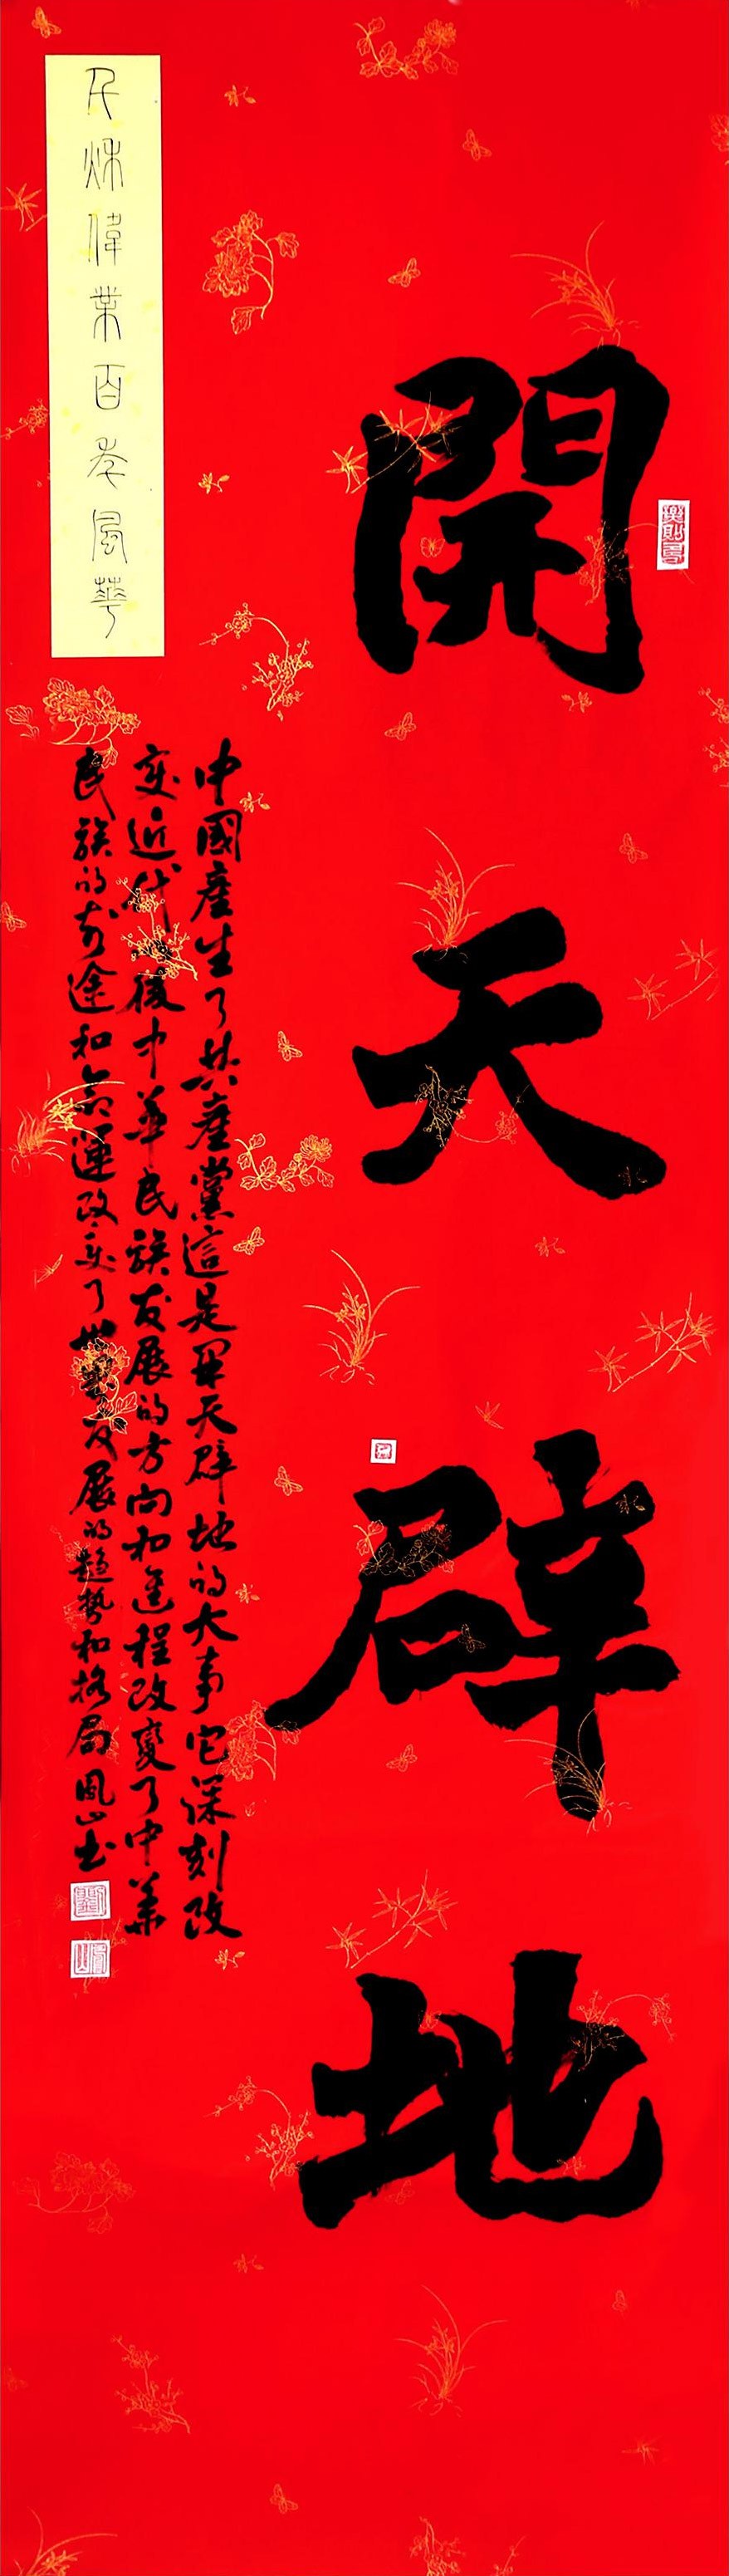 開天辟地
中國產生了共產黨這是開天辟地的大事它深刻改
变近代以後中華民族发展的方向和進程改變了中華
民族的前途和命運改变了世界发展的趨勢和格局凤山书
千秋偉業百年風華